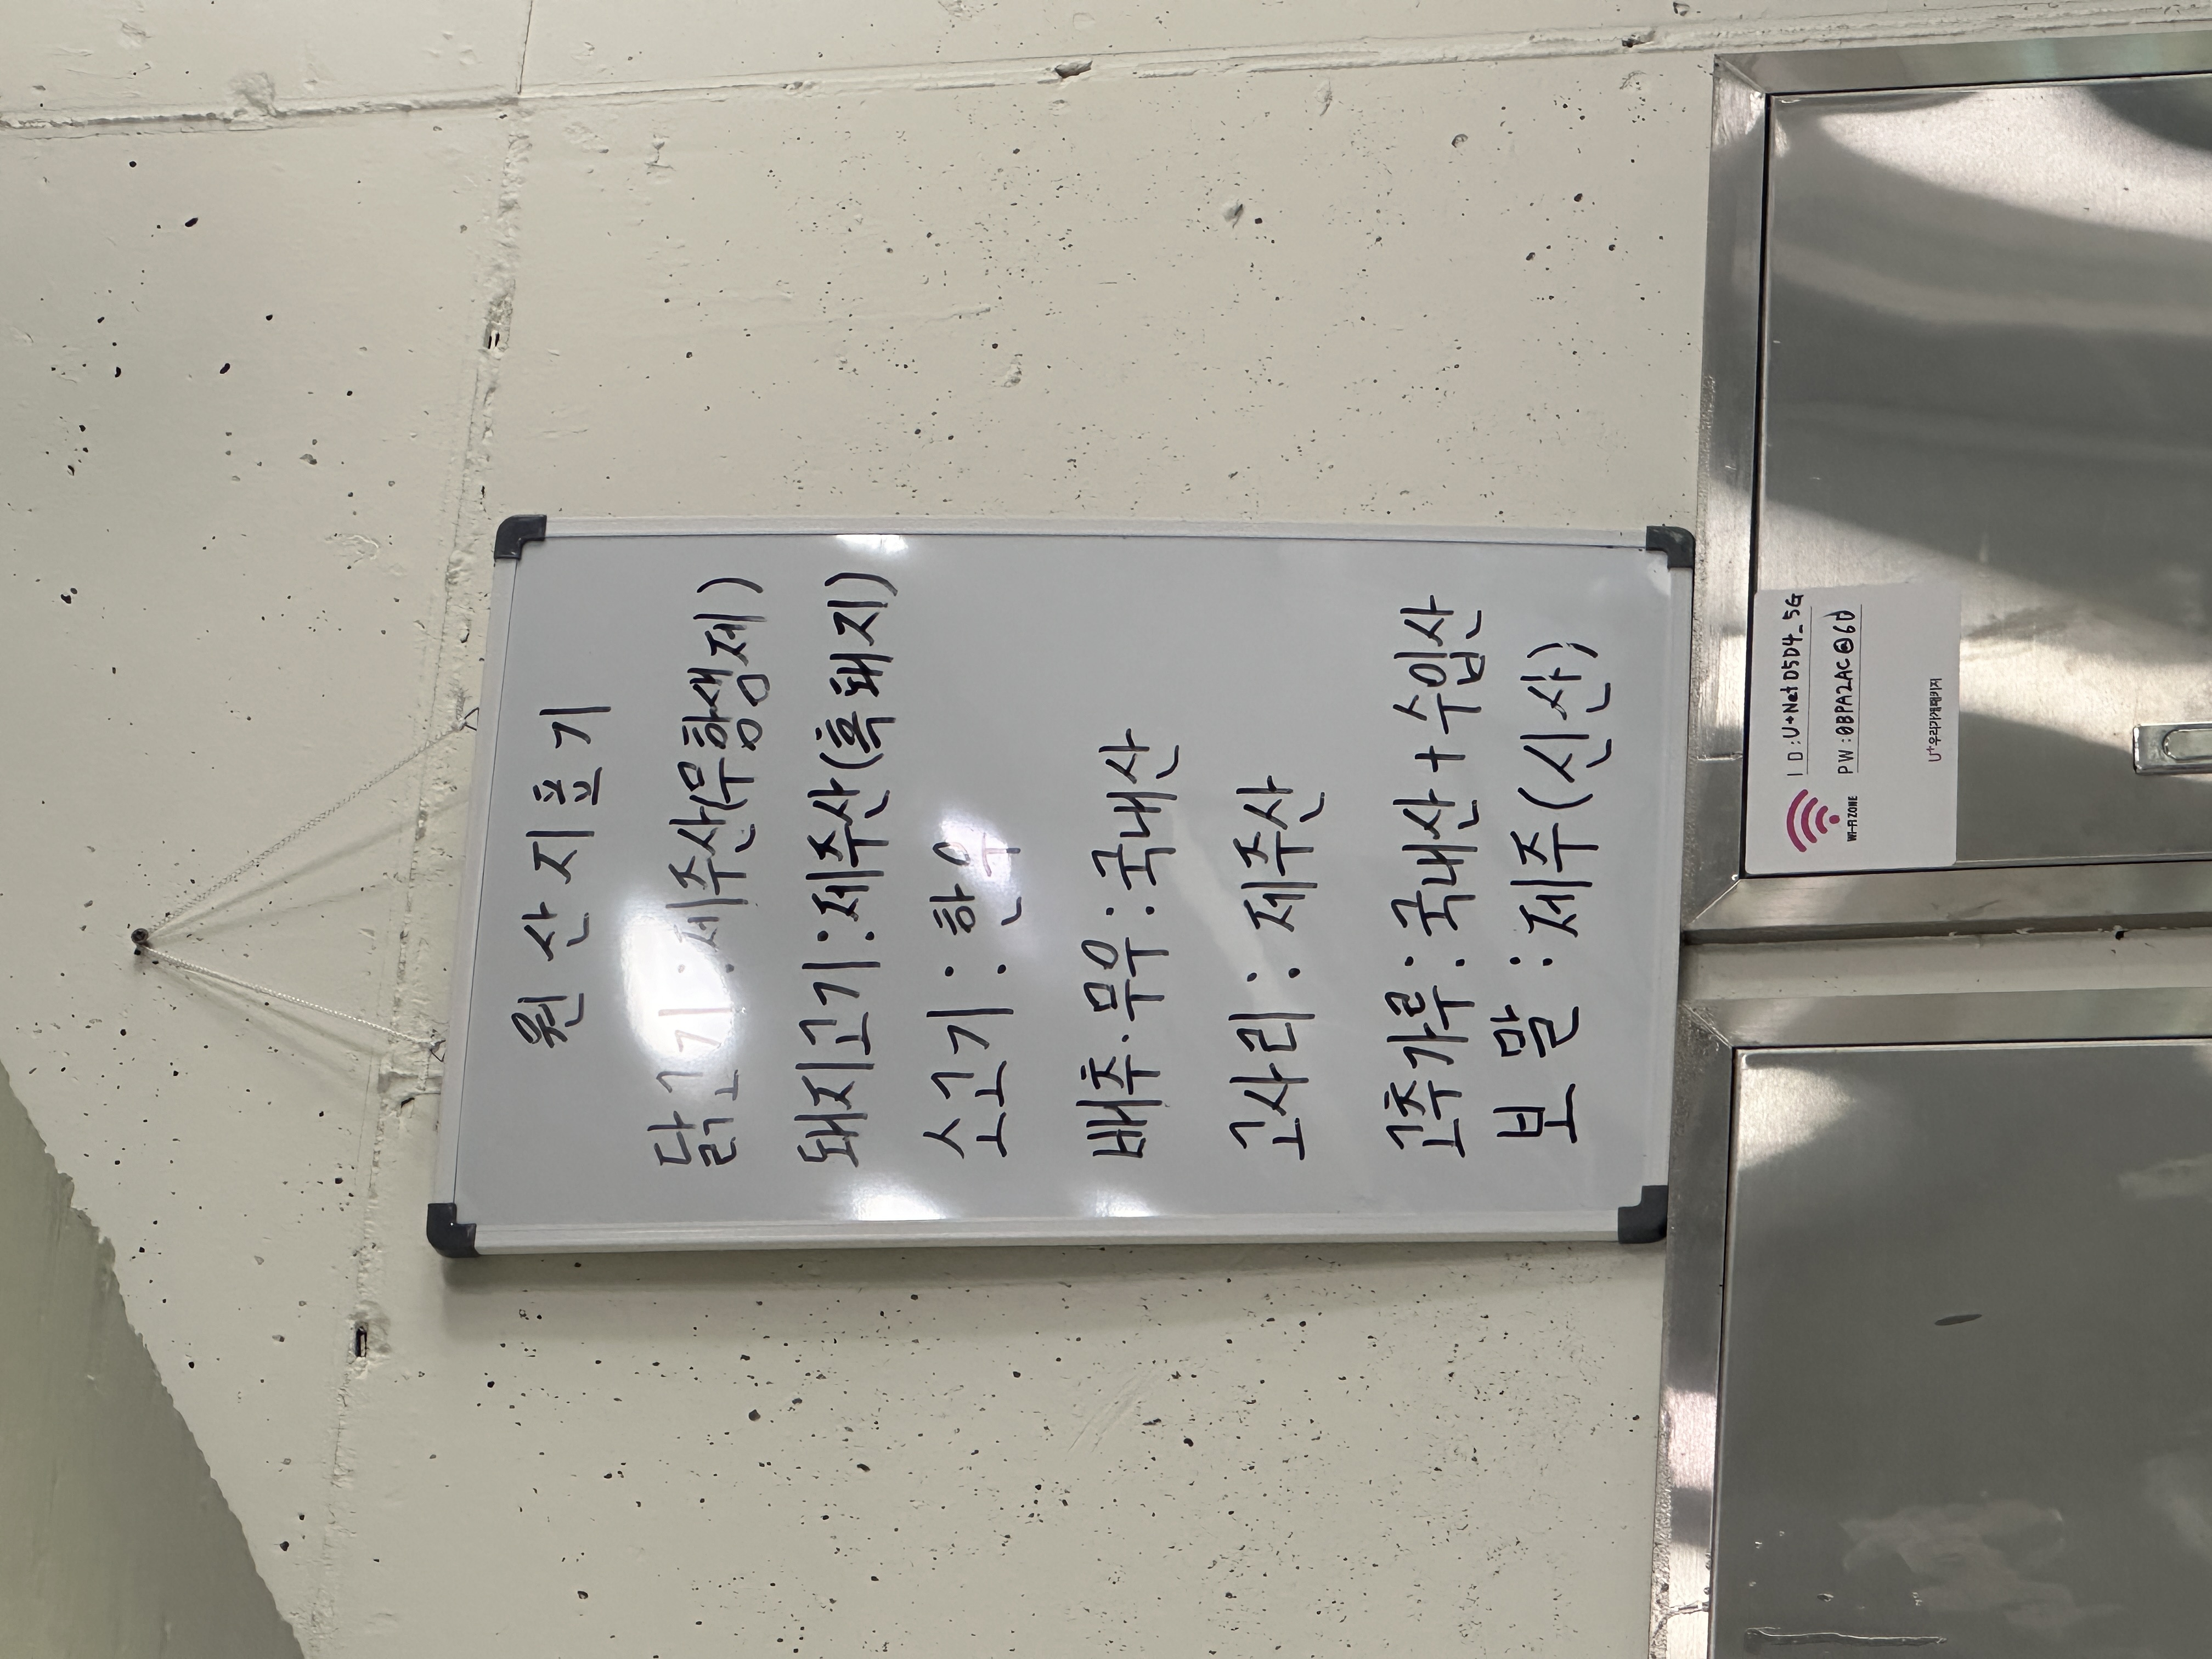 원산지표기
닭고기:제주산(무항생제)
돼지고기:제주산(흑돼지)
소고기:한우
배추.무우:국내산
고사리:제주산
고추가루:국내산+수입산
보말:제주(신산)
WI-FI ZONE
ID:U+Net D5D4_5G
PW:0BPA2AC@6d
U+우리가게패키지